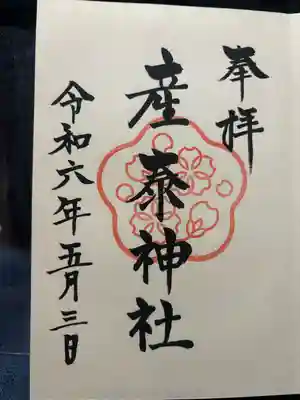 奉拝
産泰神社
令和六年五月三日